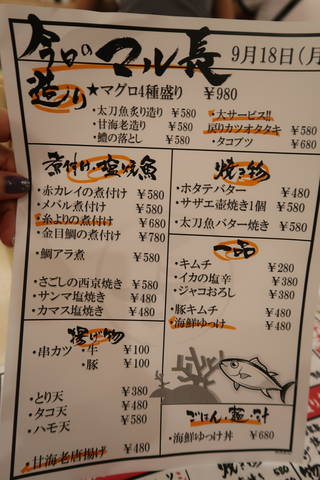 今日のマル長 9月18日(月
造り
★マグロ4種盛り ¥980
・太刀魚炙り造り ¥580
・甘海老造り ¥580
・鱧の落とし ¥580
・大サービス!!
戻りカツオタタキ ¥580
・タコブツ ¥580
煮付け・塩焼魚
・赤カレイの煮付け ¥580
・メバル煮付け ¥580
・糸よりの煮付け ¥680
・金目鯛の煮付け ¥780
・鯛アラ煮 ¥580
・さごしの西京焼き ¥580
・サンマ塩焼き ¥480
・カマス塩焼き ¥480
焼き物
・ホタテバター ¥480
・サザエ壺焼き1個 ¥580
・太刀魚バター焼き ¥580
一品
・キムチ ¥280
・イカの塩辛 ¥380
・ジャコおろし ¥380
・豚キムチ ¥480
・海鮮ゆっけ ¥480
揚げ物
・串カツ ・牛 ¥100
・豚 ¥100
・とり天 ¥380
・タコ天 ¥480
・ハモ天 ¥580
・甘海老唐揚げ ¥480
ごはん・麺・汁
・海鮮ゆっけ丼 ¥680